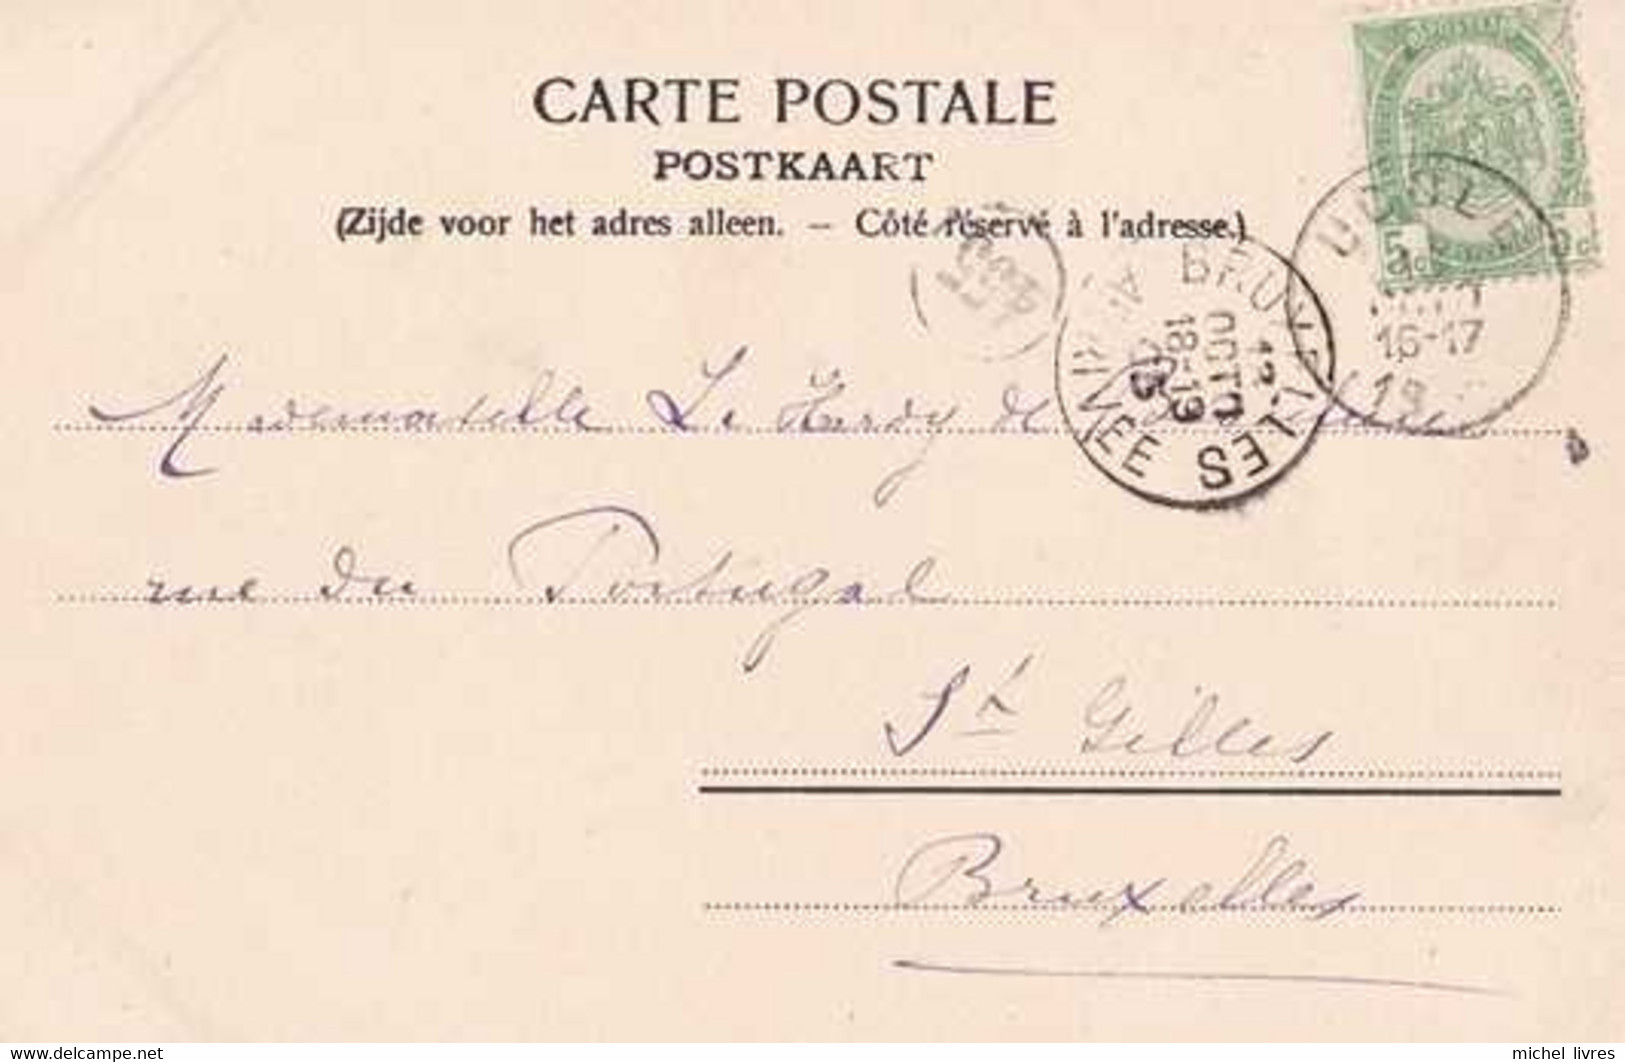 CARTE POSTALE
POSTKAART
(Zijde voor het adres alleen. — Côté réservé à l'adresse.)
5c 5c
BRUXELLES ARRIVEE
12
OCTO
18-19
16-17
19
Mademoiselle Le Hardy de
rue du Portugal
St Gilles
Bruxelles
www.delcampe.net
michel_livres